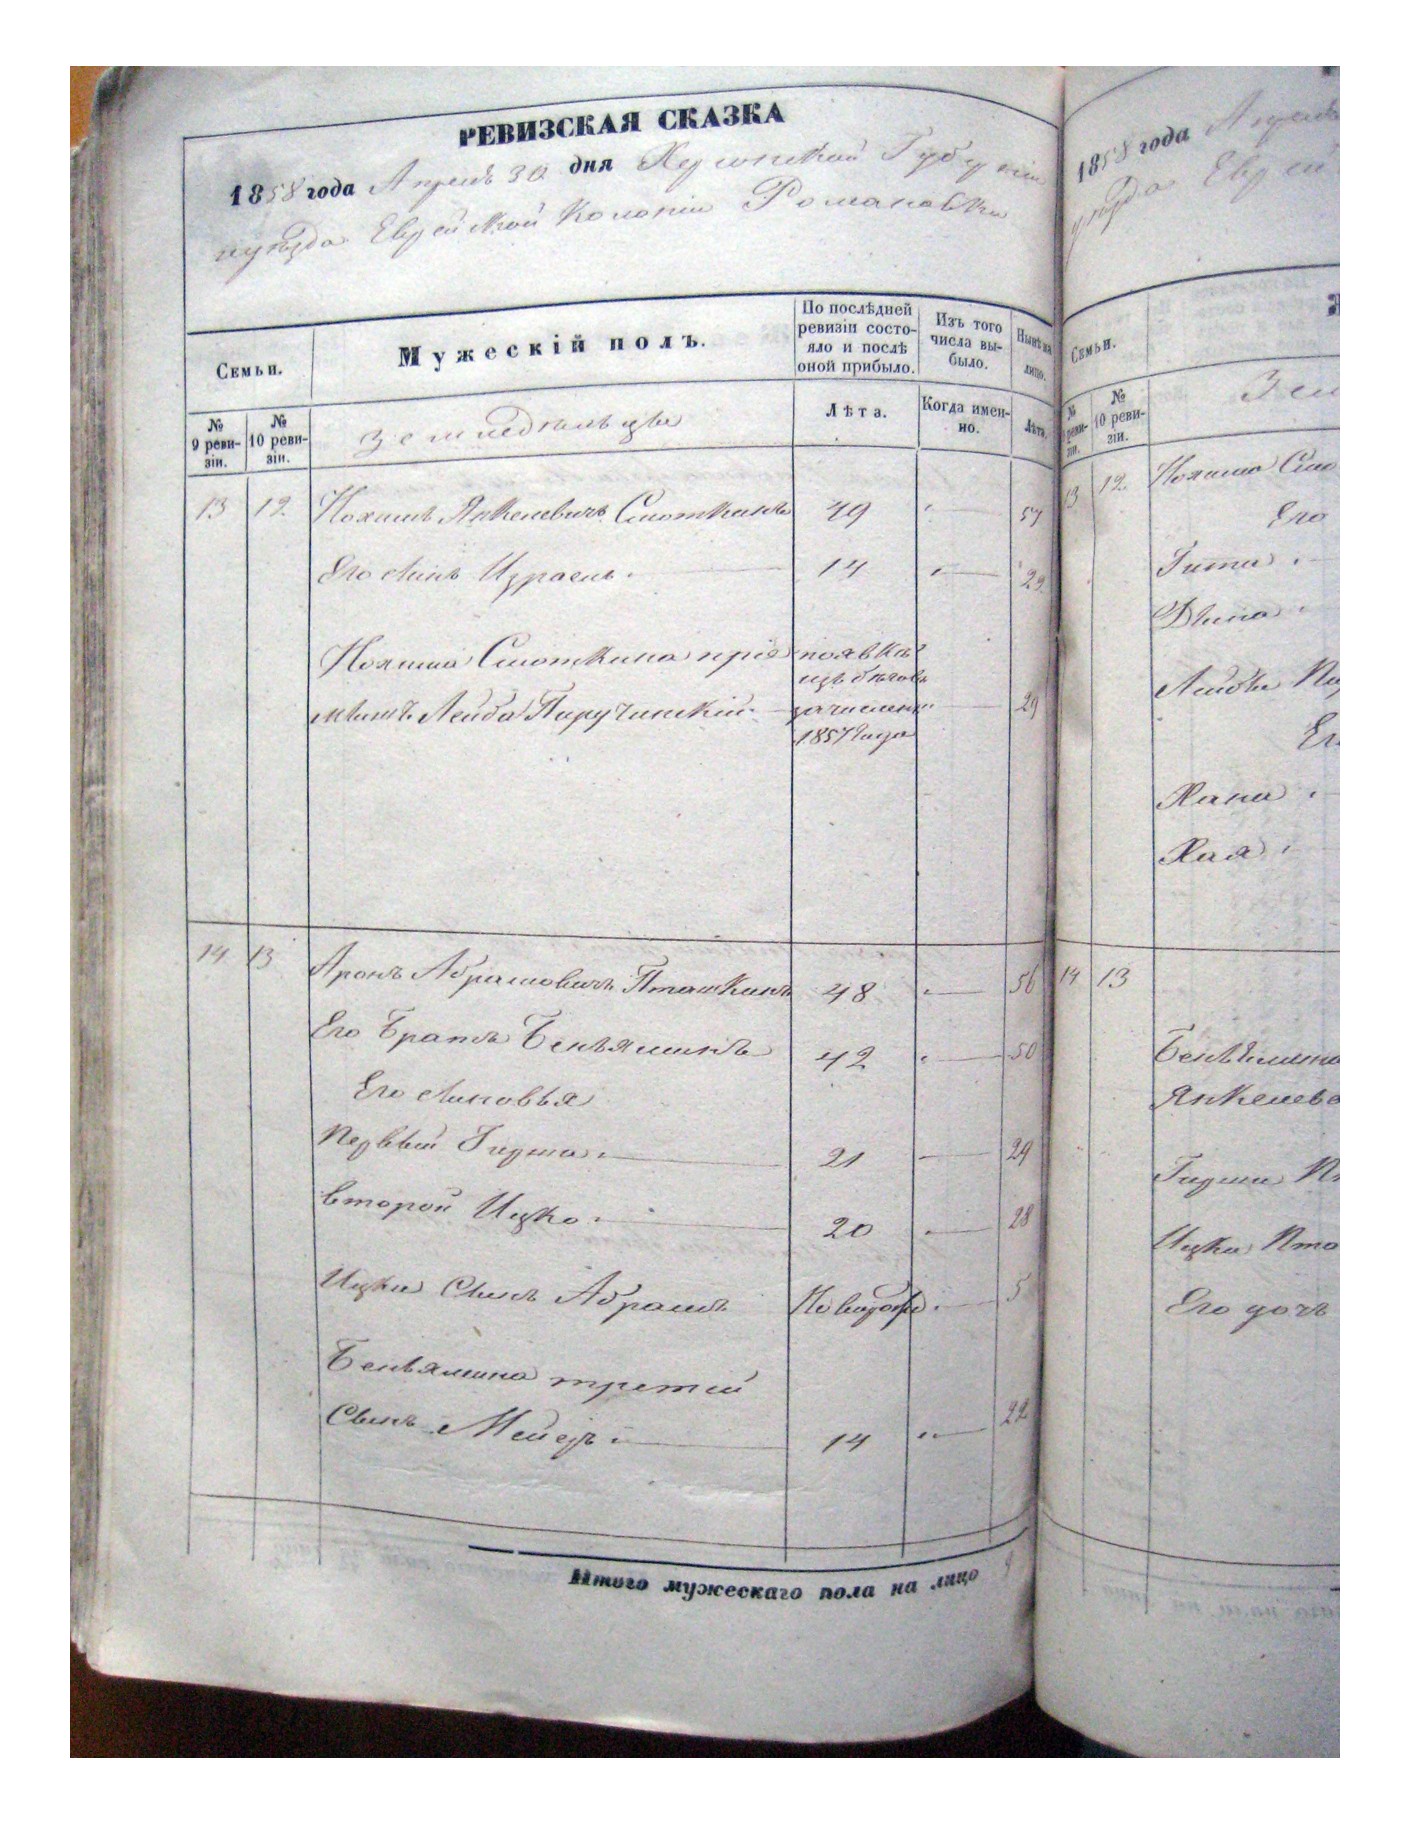 РЕВИЗСКАЯ СКАЗКА
1858 года Апреля 30 дня Херсонской Губерніи
уѣзда Еврейской Колоніи Романовки
Семьи.
Мужескій полъ.
По послѣдней ревизіи состояло и послѣ оной прибыло.
Изъ того числа выбыло.
Нынѣ на лицо.
№ 9 ревизіи.
№ 10 ревизіи.
Земледѣльцы
Лѣта.
Когда именно.
Лѣта.
13 12 Янкелевичъ Смоткинъ 49 57
Его сынъ Израель. 14 22
Смоткина пріе- по явкѣ
изъ бѣговъ
мышъ Лейба зачисленъ 29
1857 года
14 13 Аронъ Абрамовичъ Пташкинъ 48 56
Его Братъ Бенъяминъ 42 50
Его сыновья
Первый Гирша. 21 29
Второй Ицко. 20 28
Ицки Сынъ Абрамъ Новорож. 5
Бенъямина третій
Сынъ Мейеръ. 14 22
Итого мужескаго пола на лицо 9
1858 года Апреля
уѣзда Еврей
Семьи.
№ ревизіи.
№ 10 ревизіи.
Зем
13 12.
Его
Гита.
Двина
Лейбы
Хана.
Хая.
14 13
Бенъямина
Янкелева
Гирши
Ицки Пта
Его дочь